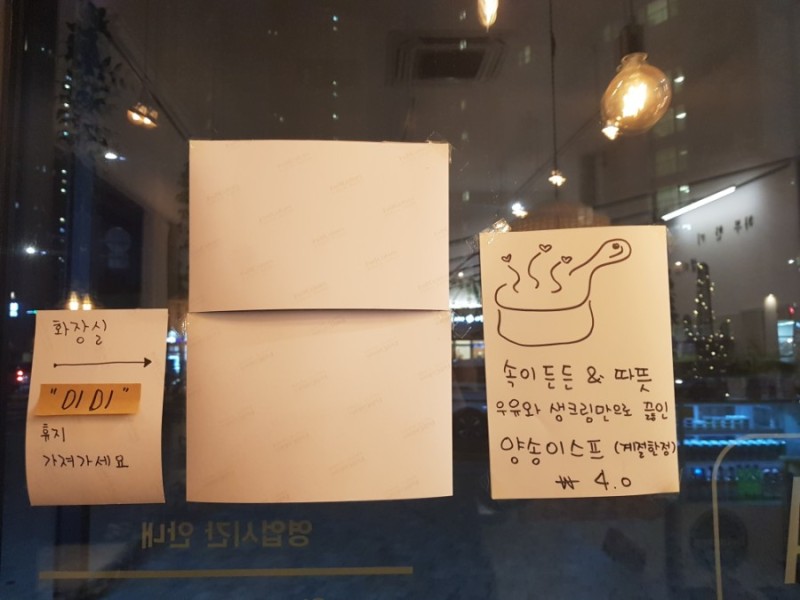 화장실
"미미"
휴지
가져가세요
속이 든든 & 따뜻
우유와 생크림만으로 끓인
양송이스프 (계절한정)
₩ 4.0
영업시간 안내